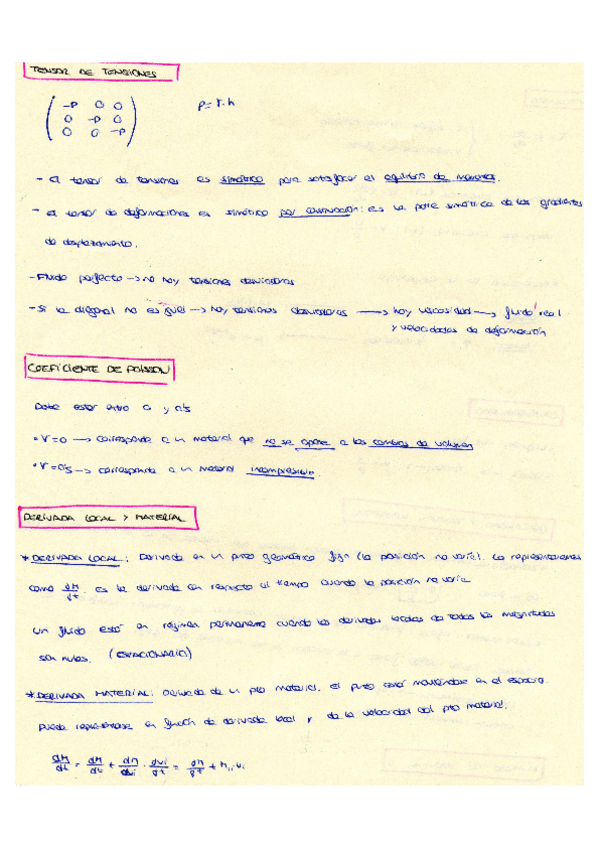 TENSOR DE TENSIONES
-P 0 0
0 -P 0
0 0 -P
P = γ·h
- el tensor de tensiones es simétrico para satisfacer el equilibrio de momentos.
- el tensor de deformaciones es simétrico por construcción: es la parte simétrica de los gradientes
de desplazamiento.
- Fluido perfecto → no hay tensiones desviadoras
- Si la diagonal no es igual → hay tensiones desviadoras → hay viscosidad → fluido real
y velocidades de deformación
COEFICIENTE DE POISSON
Debe estar entre 0 y 0'5
• V=0 → corresponde a un material que no se opone a los cambios de volumen
• V=0'5 → corresponde a un material incompresible.
DERIVADA LOCAL Y MATERIAL
* DERIVADA LOCAL: Derivada en un punto geométrico fijo (la posición no varíe). La representaremos
como ∂M/∂t. es la derivada con respecto al tiempo cuando la posición no varía
un fluido está en régimen permanente cuando las derivadas locales de todas las magnitudes
son nulas. (ESTACIONARIO)
* DERIVADA MATERIAL: Derivada de un pto material. el punto está moviéndose en el espacio.
puede representarse en función de derivada local y de la velocidad del pto material.